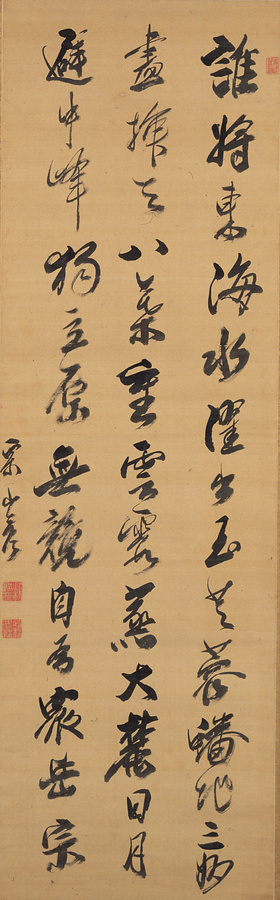 誰將東海水濯出玉芙蓉蟠地三州
盡插天八葉重雲霞蒸大麓日月
避中峰獨立原無競自為衆岳宗
栗山彦